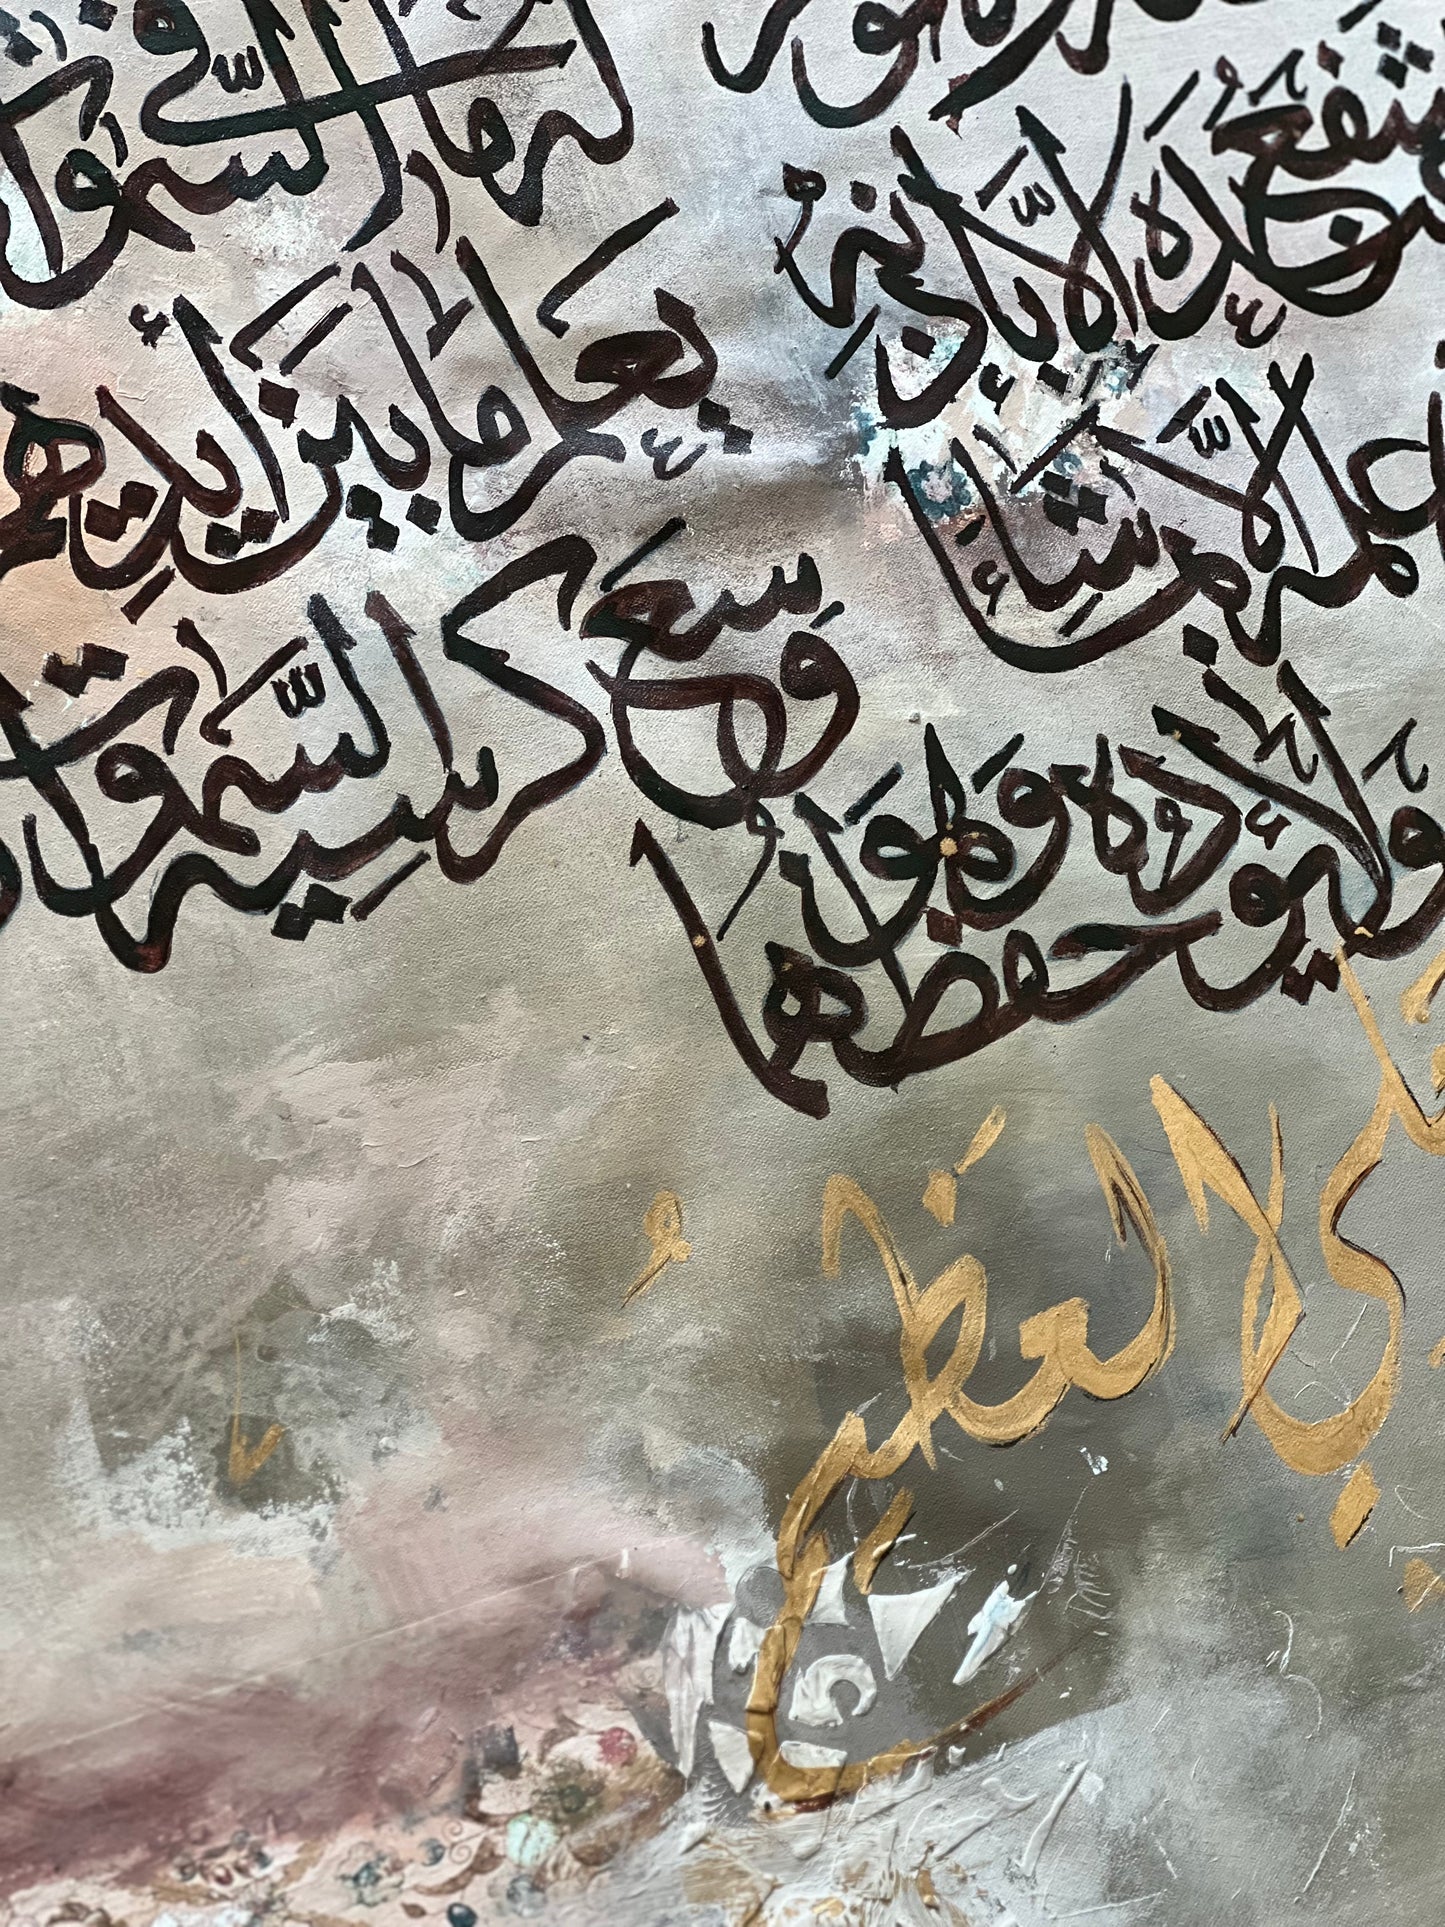 لَهُ مَا فِي السَّمٰوٰت
يشفعُ عِندهُ إلّا بإذنِهِ يعلمُ مَا بَينَ أيدِيهم
علمِهِ إلّا بِمَا شَاءَ وَسِعَ كُرسِيهُ السَّمٰوٰت
وَلَا يَئُودُهُ حِفظُهُمَا وَهُوَ
العلي العظيمُ